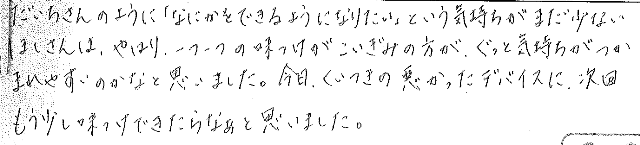 だいちさんのように「なにかをできるようになりたい」という気持ちがまだ少ない
ほしさんは、やはり、一つ一つの味つけがこいぎみの方が、ぐっと気持ちがつか
まれやすいのかなと思いました。今日、くいつきの悪かったデバイスに、次回
もう少し味つけできたらなぁと思いました。